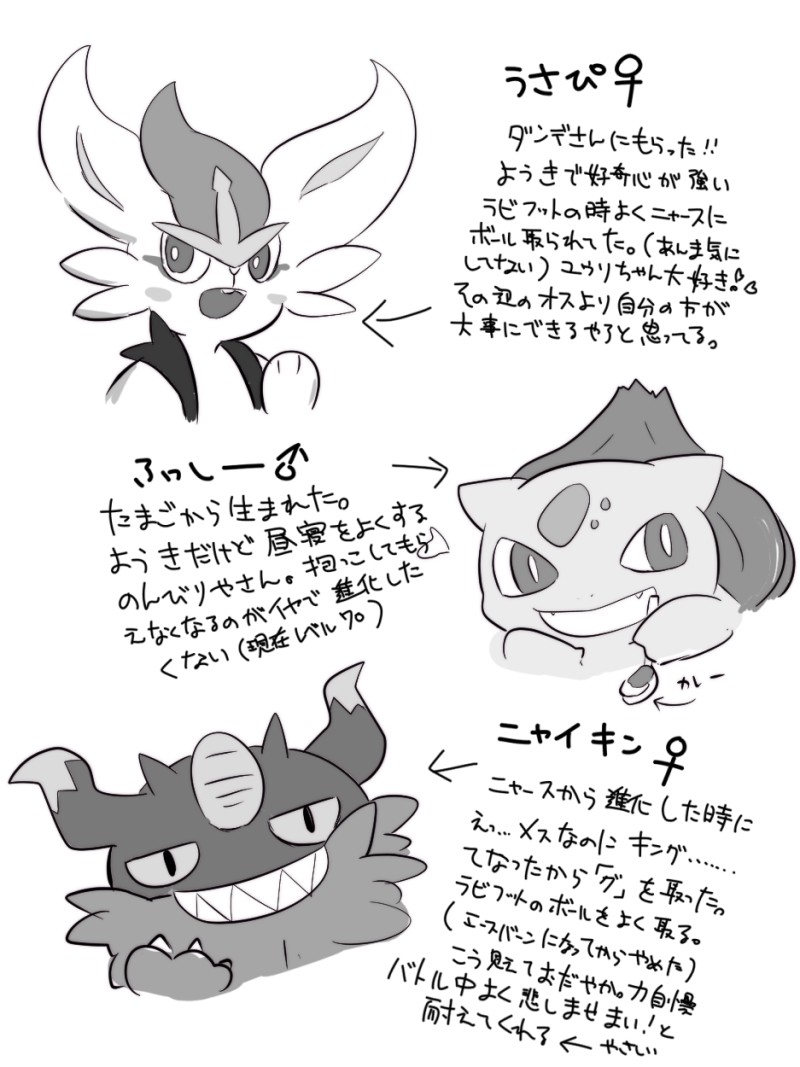 うさぴ♀
ダンデさんにもらった!!
ようきで好奇心が強い
ラビフットの時よくニャースに
ボール取られてた。(あんま気に
してない)ユウリちゃん大好き!♡
その辺のオスより自分の方が
大事にできるやろと思ってる。
ふっしー♂
たまごから生まれた。
ようきだけど昼寝をよくする
のんびりやさん。抱っこしてもら
えなくなるのがイヤで進化した
くない(現在レベル70)
カレー
ニャイキン♀
ニャースから進化した時に
えっ…メスなのにキング……
てなったから「グ」を取った。
ラビフットのボールをよく取る。
(エースバーンになってからやめた)
こう見えておだやか。力自慢
バトル中よく悲しませまい!と
耐えてくれる←やさしい